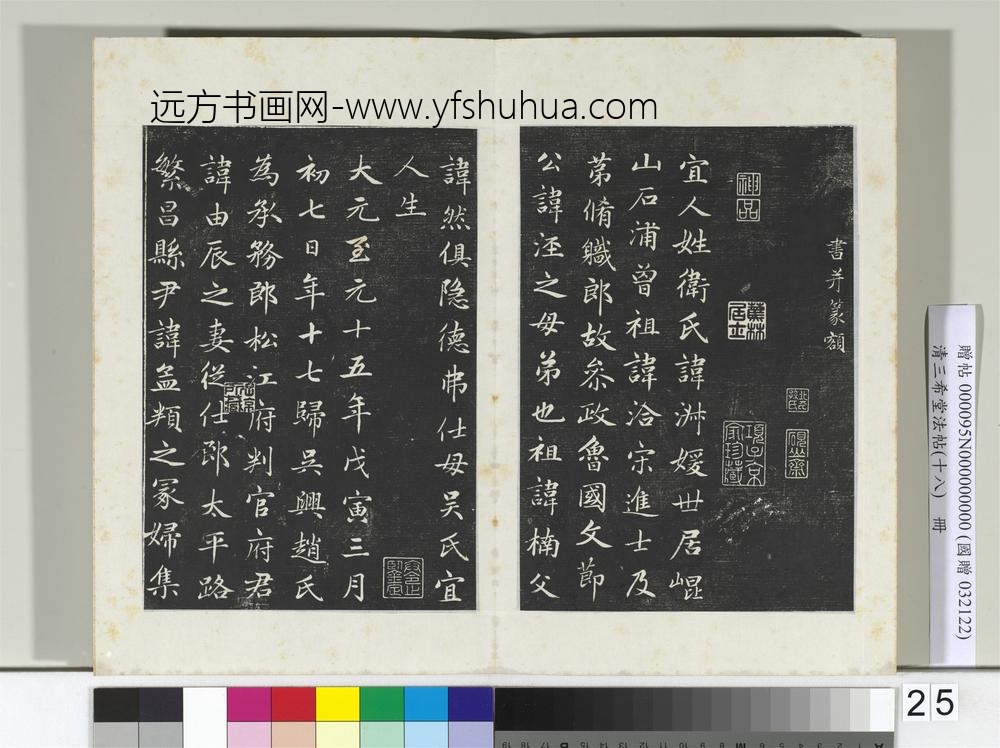 远方书画网-www.yfshuhua.com
書并篆額
神品
宜人姓衛氏諱淑媛世居崐
山石浦曾祖諱洽宋進士及
苐脩職郎故叅政魯國文節
公諱涇之母弟也祖諱楠父
諱然俱隐德弗仕母吴氏宜
人生
大元至元十五年戊寅三月
初七日年十七歸吴興趙氏
為承務郎松江府判官府君
諱由辰之妻從仕郎太平路
繁昌縣尹諱孟頖之冢婦集
贈帖 000095N000000000 (國贈 032122)
清三希堂法帖(十八) 冊
25